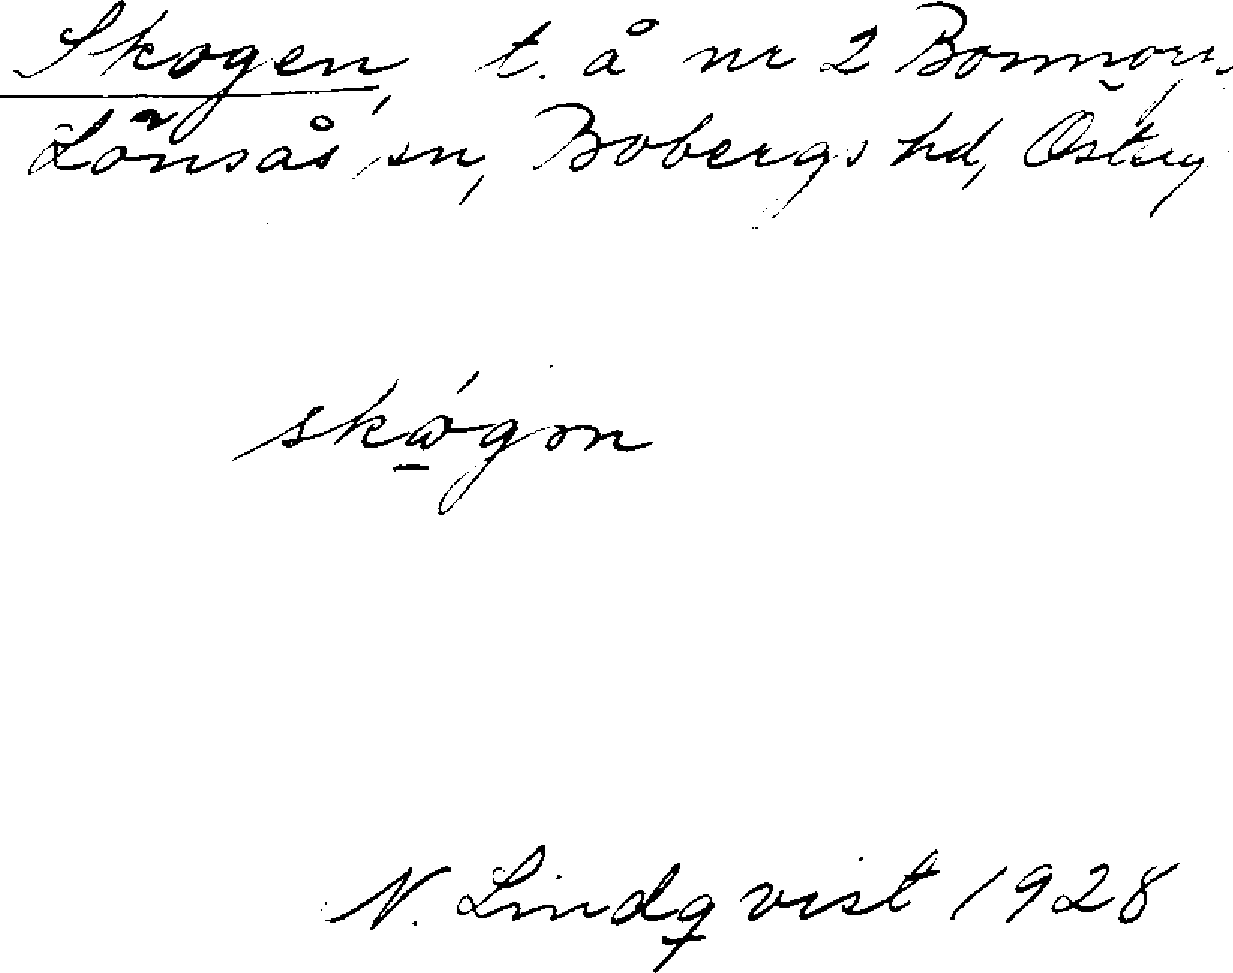 Skogen, t. å nr 2 Bonnorp,
Lönsås sn, Bobergs hd, Östrg
skógon
N. Lindqvist 1928